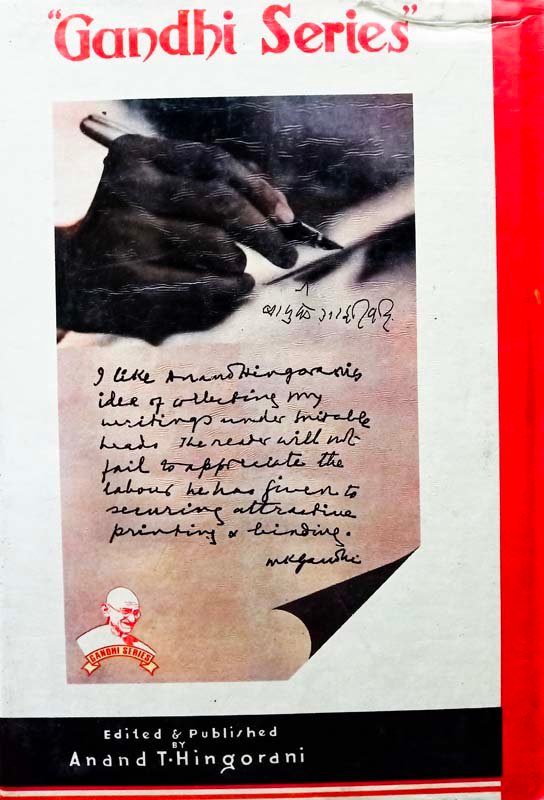 "Gandhi Series"
I like Anand Hingorani's
idea of collecting my
writings under suitable
heads. The reader will not
fail to appreciate the
labour he has given to
securing attractive
printing & binding.
MKGandhi
GANDHI SERIES
Edited & Published
BY
Anand T. Hingorani